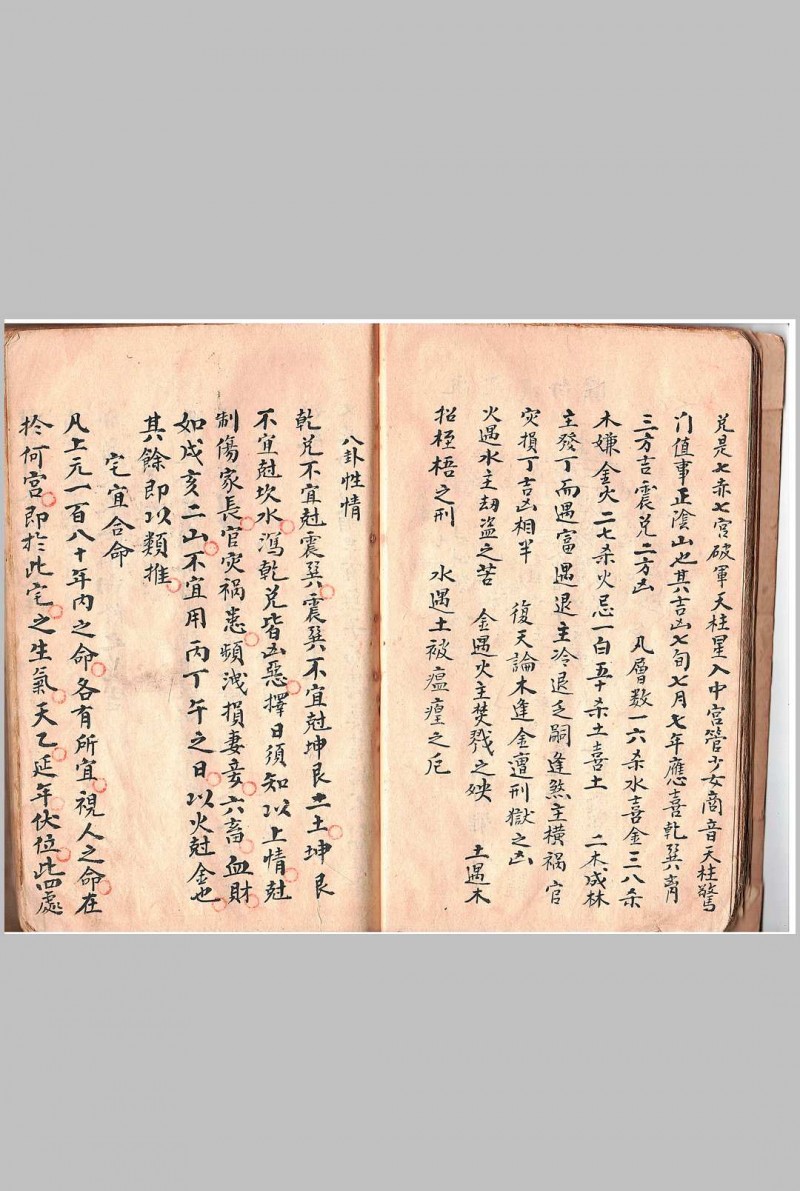 兌是七赤七宮破軍天柱星入中宮管少女商音天柱驚
门值事正陰山也其吉凶七旬七月七年應喜乾巽
三方吉震兌二方凶 凡層数一六杀水喜金三八杀
木嫌金火二七杀火忌一白五十杀土喜土 二木成林
主發丁而遇富遇退主冷退乏嗣逢煞主横禍官
灾損丁吉凶相半 復天論木逢金遭刑獄之凶
火遇水主劫盗之苦 金遇火主焚戮之殃 土遇木
招桎梧之刑 水遇土被瘟瘟之厄
八卦性情
乾兌不宜尅震巽震巽不宜尅坤艮二土坤艮
不宜尅坎水瀉乾兌皆凶惡擇日須知以上情尅
制傷家長官灾禍患頻洩損妻妾六畜血財
如戍亥二山不宜用丙丁午之日以火尅金也
其餘即以類推
宅宜合命
凡上元一百八十年内之命各有所宜視人之命在
扵何宮即扵此宅之生氣天乙延年伏位此四處